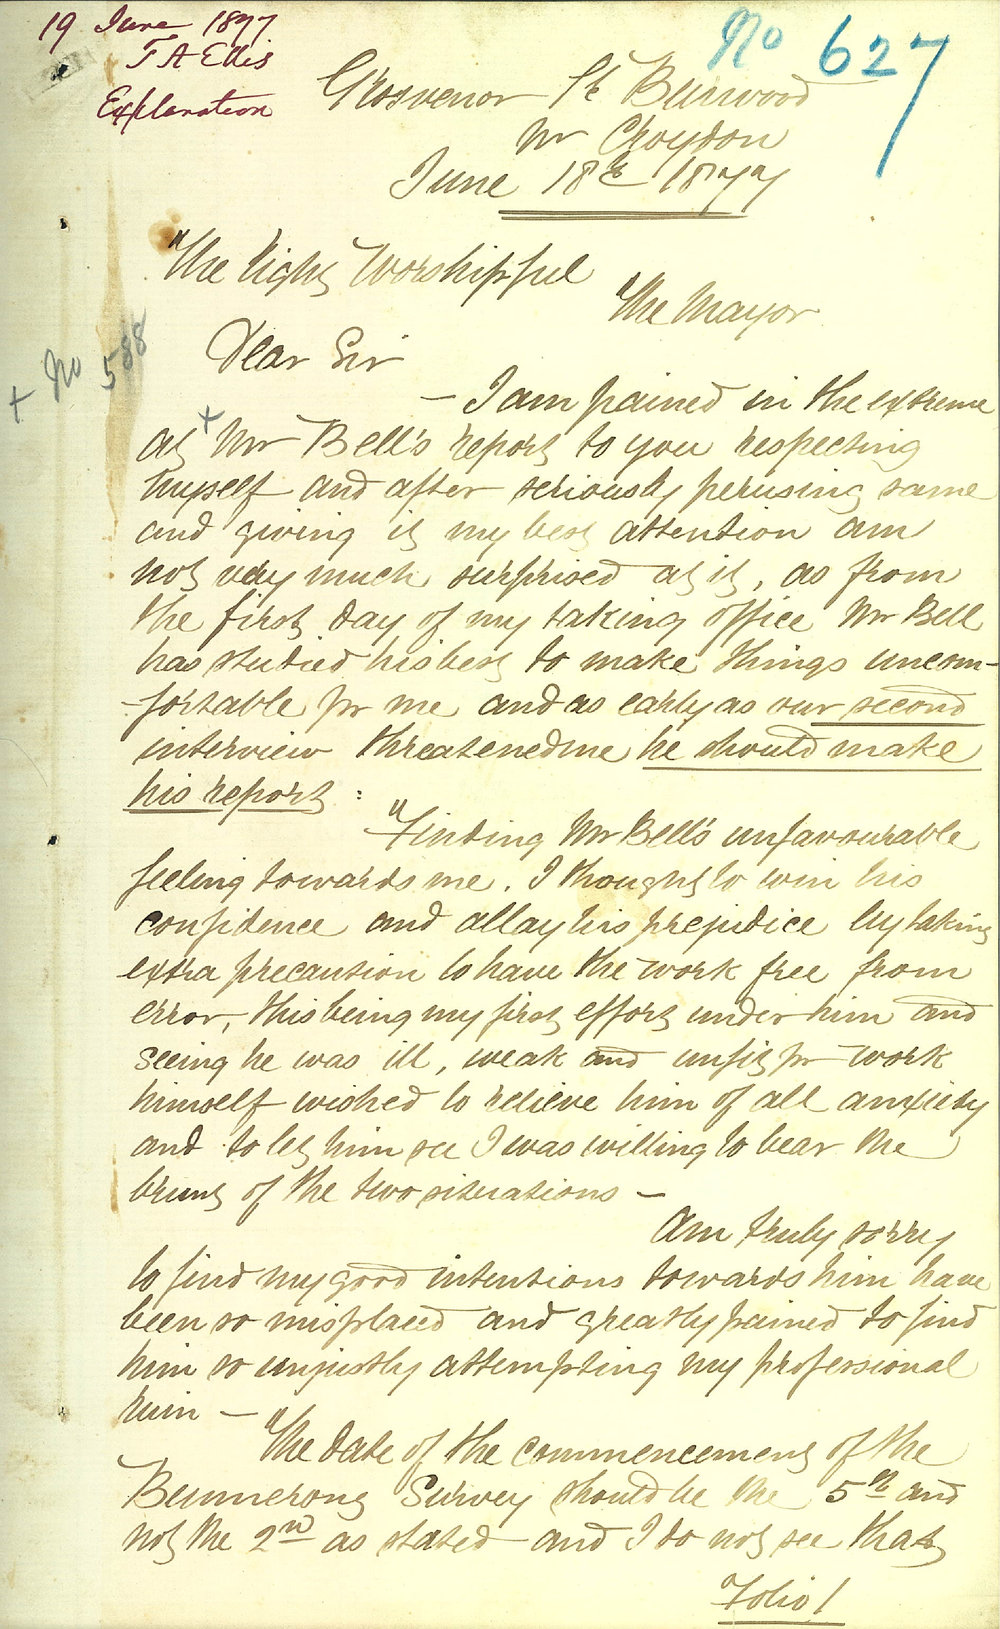 19 June 1877
T A Ellis
Explanation
No 627
Grosvenor St Burwood
nr Croydon
June 18th 1877
The Right Worshipful
The Mayor
+ No 588
Dear Sir
— I am pained in the extreme
at + Mr Bell's report to you respecting
myself and after seriously perusing same
and giving it my best attention am
not very much surprised at it, as from
the first day of my taking office Mr Bell
has studied his best to make things uncom-
fortable for me and as early as our second
interview threatened me he should make
his report :
Finding Mr Bell's unfavourable
feeling towards me. I thought to win his
confidence and allay his prejudice by taking
extra precaution to have the work free from
error, this being my first effort under him and
seeing he was ill, weak and unfit for work
himself wished to relieve him of all anxiety
and to let him see I was willing to bear the
brunt of the two situations —
Am truly sorry
to find my good intentions towards him have
been so misplaced and greatly pained to find
him so unjustly attempting my professional
ruin —
The date of the commencement of the
Bunnerong Survey should be the 5th and
not the 2nd as stated and I do not see that
Folio 1